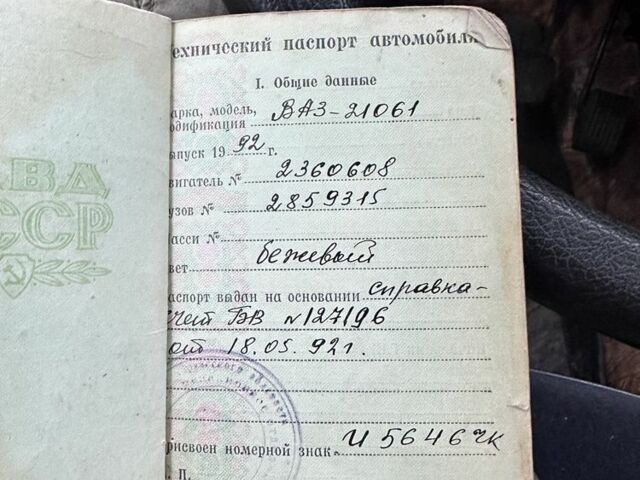 АВА
СССР
ехнический паспорт автомобиля
I. Общие данные
арка, модель, ВАЗ-21061
одификация
ыпуск 1992 г.
вигатель № 2360608
узов № 2859315
асси №
вет бежевый
аспорт выдан на основании справка-
счет БВ №127196
от 18.05.92г.
рисвоен номерной знак И 5646 ЧК
. П.